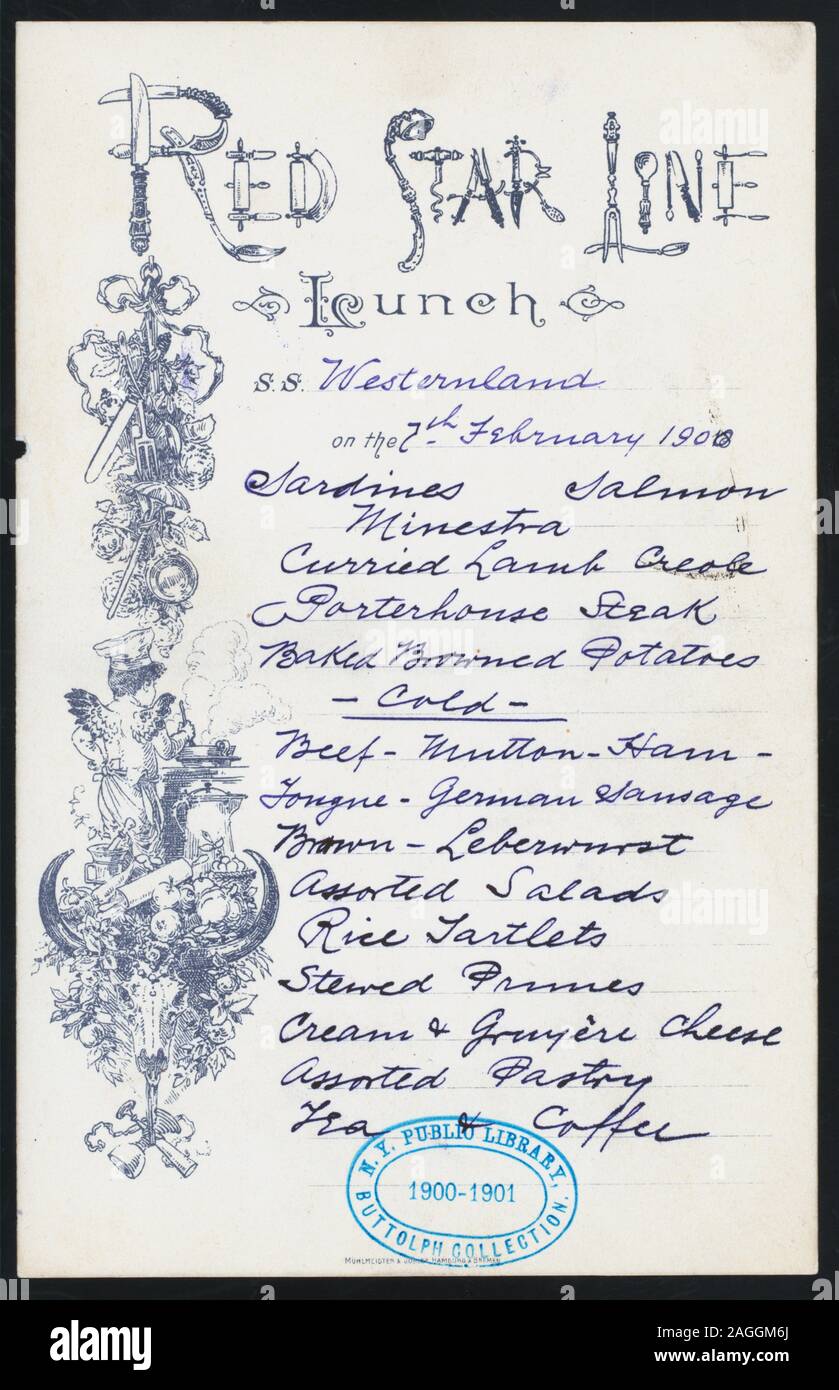 RED STAR LINE
Lunch
S.S. Westernland
on the 7th February 1900
Sardines Salmon
Minestra
Curried Lamb Creole
Porterhouse Steak
Baked Browned Potatoes
- Cold -
Beef - Mutton - Ham -
Tongue - German Sausage
Brawn - Leberwurst
Assorted Salads
Rice Tartlets
Stewed Prunes
Cream & Gruyère Cheese
Assorted Pastry
Tea & Coffee
N.Y. PUBLIC LIBRARY,
1900-1901
BUTTOLPH COLLECTION.
MÜHLMEISTER & HAMBURG & BREMEN
alamy
alamy
Image ID: 2AGGM6J
www.alamy.com